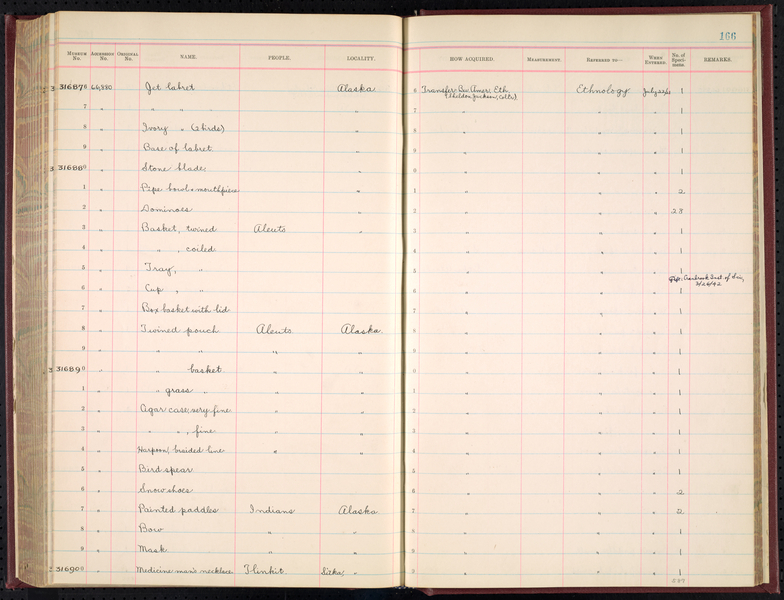 166
Museum No. Accession No. Original No. NAME. PEOPLE. LOCALITY. HOW ACQUIRED. Measurement. Referred to— When Entered. No. of Specimens. REMARKS.
316876 66,880 Jet labret Alaska 6 Transfer Bu. Amer. Eth. Ethnology 1
(Sheldon Jackson, Collr.)
7 " " " " 7 " " " 1
8 " Ivory " (2 birds) " 8 " " " 1
9 " Base of labret. " 9 " " " 1
316880 " Stone blade. " 0 " " " 1
1 " Pipe bowl & mouthpiece " 1 " " " 2
2 " Dominoes " 2 " " " 28
3 " Basket, twined Aleuts " 3 " " " 1
4 " " , coiled 4 " " " 1
5 " Tray, " 5 " " " 1
6 " Cup , " 6 " " " 1 Cranbrook Inst. of Sci,
7 " Box basket with lid 7 " " " 1
8 " Twined pouch Aleuts. Alaska. 8 " " " 1
9 " " " " " 9 " " " 1
316890 " " basket. " " 0 " " " 1
1 " " grass " " " 1 " " " 1
2 " Cigar case, very fine " " 2 " " " 1
3 " " " , fine " " 3 " " " 1
4 " Harpoon, braided line " " 4 " " " 1
5 " Bird spear 5 " " " 1
6 " Snow shoes 6 " " " 2
7 " Painted paddles Indians Alaska 7 " " " 2
8 " Bow " " 8 " " " 1
9 " Mask " " 9 " " " 1
316900 " Medicine man's necklace Tlinkit. Sitka, " 0 " " " 1